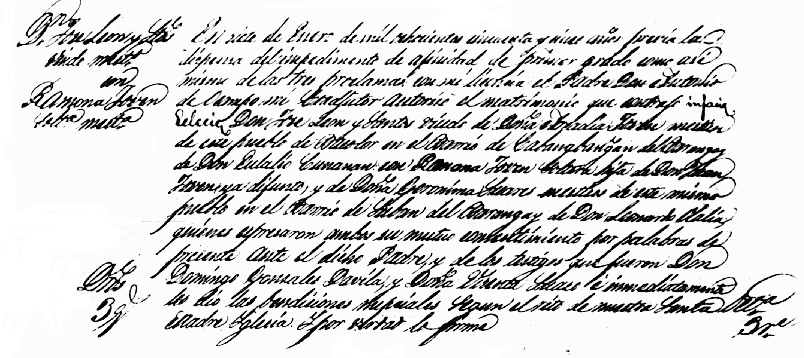 Dn Jose Leon y Stos
viudo mestº
con
Ramona Joven
solta mesta
En siete de Enero de mil ochocientos cincuenta y nueve años previa la
dispensa del impedimento de afinidad de primer grado como asi
mismo de las tres proclamas con mi licencia el Padre Don Antonio
de Campo mi Coadjutor Autorizó el matrimonio que contrajo in facie
Eclecie Don Jose Leon y Santos viudo de Doña Joven mestizo
de este pueblo de Bacolor en el Barrio de Cabangbangan del Barangay
de Don Eulalio Cunanan con Ramona Joven Soltera hija de Don Juan
Joven, ya difunto, y de Doña Geronima Suares mestizos de este mismo
pueblo en el Barrio de del Barangay de Don Leonardo
quienes espresaron ambos su mutuo consentimiento por palabras de
presente ante el dicho Padre, y de los testigos que fueron Don
Domingo Gonzales Davila, y Doña Vicenta é inmediatamente
les dio las bendiciones nupciales segun el rito de nuestra Santa
Madre Iglesia. Y por verdad lo firmé
Dros
3 g
3 re